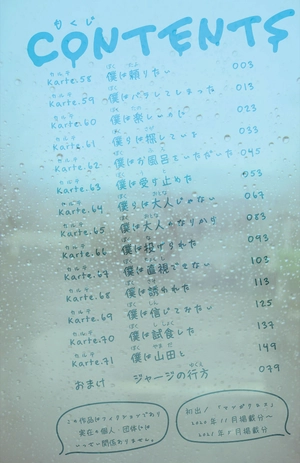 もくじ
CONTENTS
カルテ
Karte.58 僕は頼りたい 003
Karte.59 僕はバラしてしまった 013
Karte.60 僕は楽しいのに 023
Karte.61 僕らは探している 033
Karte.62 僕はお風呂をいただいた 045
Karte.63 僕は受け止めた 053
Karte.64 僕らは大人じゃない 067
Karte.65 僕は大人かなりから
Karte.66 僕は投げられた 093
Karte.67 僕は直視できない 103
Karte.68 僕は誘われた 113
Karte.69 僕は信じてみたい 125
Karte.70 僕は試食した 137
Karte.71 僕は山田と 149
おまけ ジャージの行方 079
この作品はフィクションであり
実在の個人・団体とは
いっさい関係ありません。
初出/「マンガクロス」
2020年11月掲載分〜
2021年5月掲載分